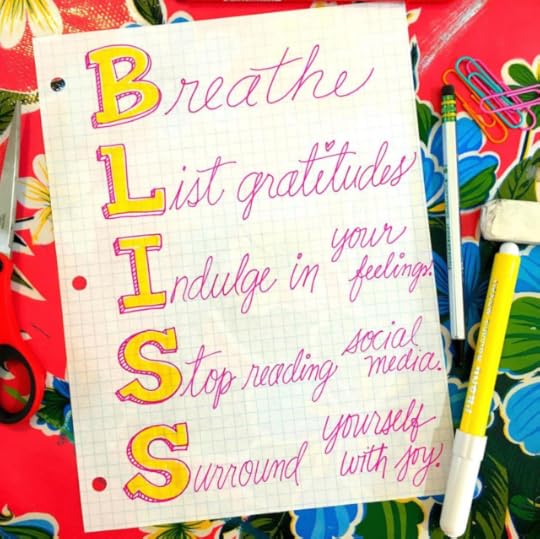 Breathe
List gratitudes
Indulge in your feelings.
Stop reading social media.
Surround yourself with joy.